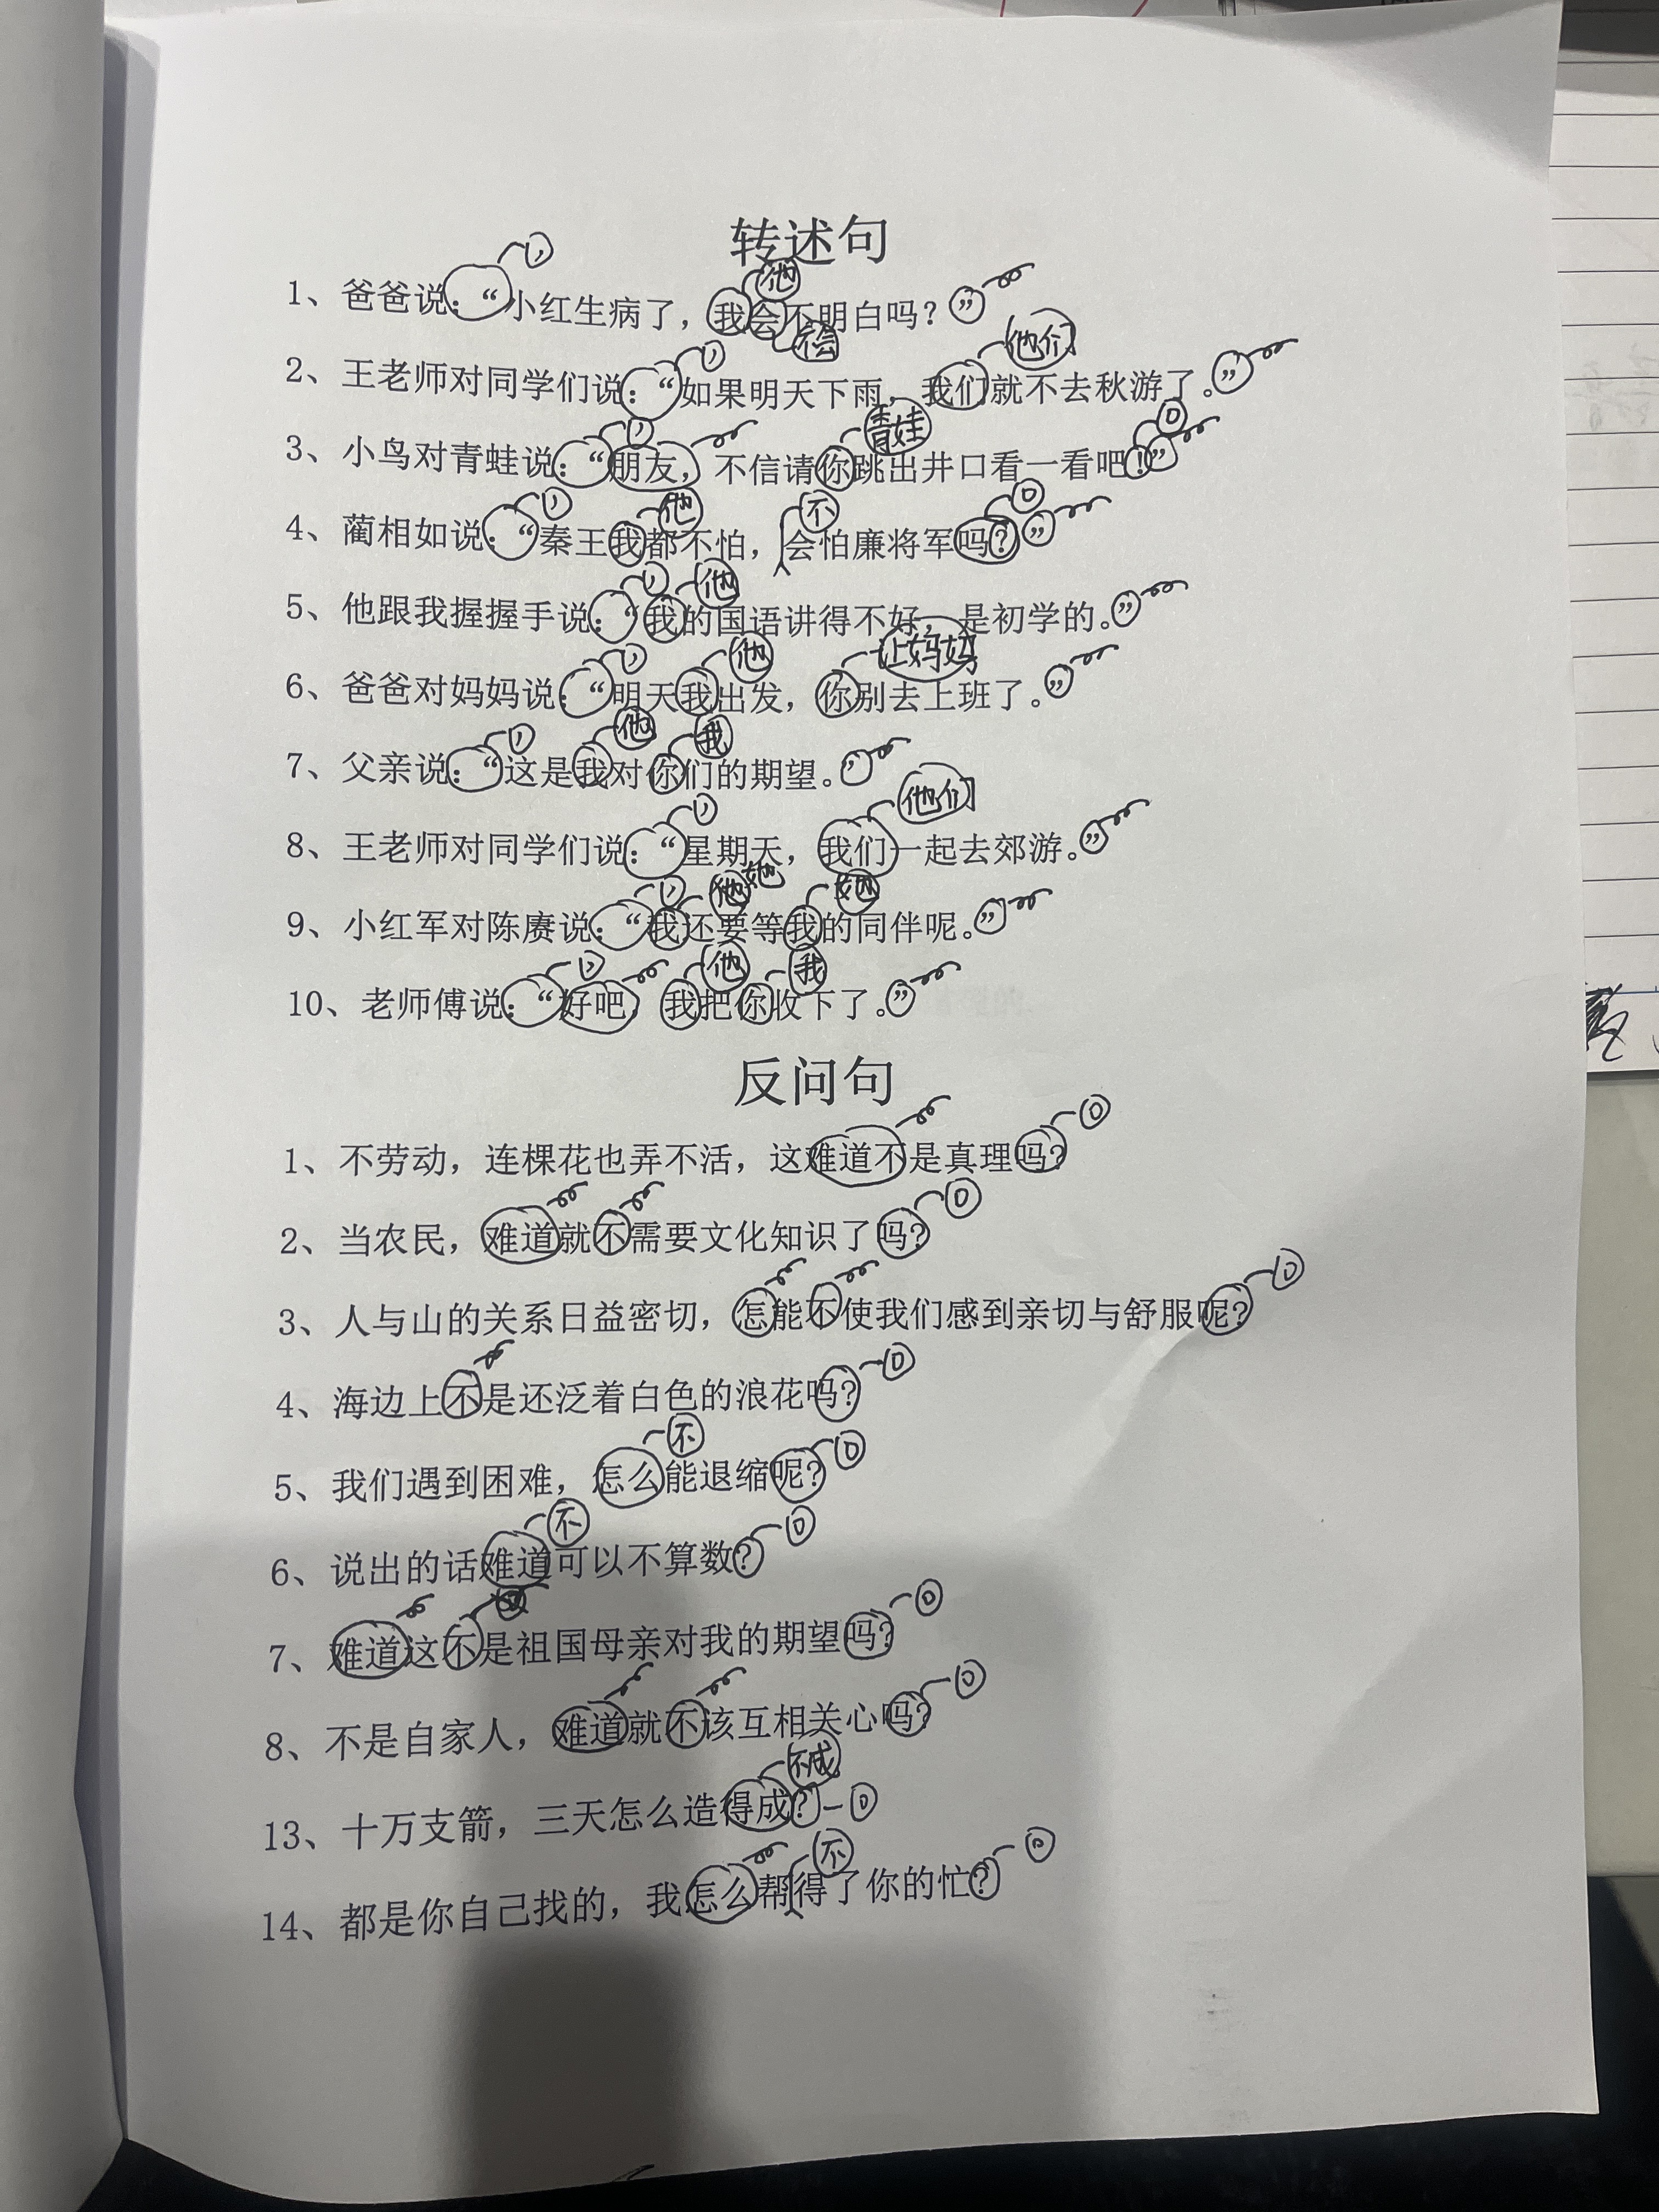 转述句
1、爸爸说：“小红生病了，我会不明白吗？”
2、王老师对同学们说：“如果明天下雨，我们就不去秋游了。”
3、小鸟对青蛙说：“朋友，不信请你跳出井口看一看吧！”
4、蔺相如说：“秦王我都不怕，会怕廉将军吗？”
5、他跟我握握手说：“我的国语讲得不好，是初学的。”
6、爸爸对妈妈说：“明天我出发，你别去上班了。”
7、父亲说：“这是我对你们的期望。”
8、王老师对同学们说：“星期天，我们一起去郊游。”
9、小红军对陈赓说：“我还要等我的同伴呢。”
10、老师傅说：“好吧，我把你收下了。”
反问句
1、不劳动，连棵花也弄不活，这难道不是真理吗？
2、当农民，难道就不需要文化知识了吗？
3、人与山的关系日益密切，怎能不使我们感到亲切与舒服呢？
4、海边上不是还泛着白色的浪花吗？
5、我们遇到困难，怎么能退缩呢？
6、说出的话难道可以不算数？
7、难道这不是祖国母亲对我的期望吗？
8、不是自家人，难道就不该互相关心吗？
13、十万支箭，三天怎么造得成？
14、都是你自己找的，我怎么帮得了你的忙？
他
不会
他们
青蛙
他
不
他
他
让妈妈
他
我
他们
她
她
他
我
不
不
不成
不